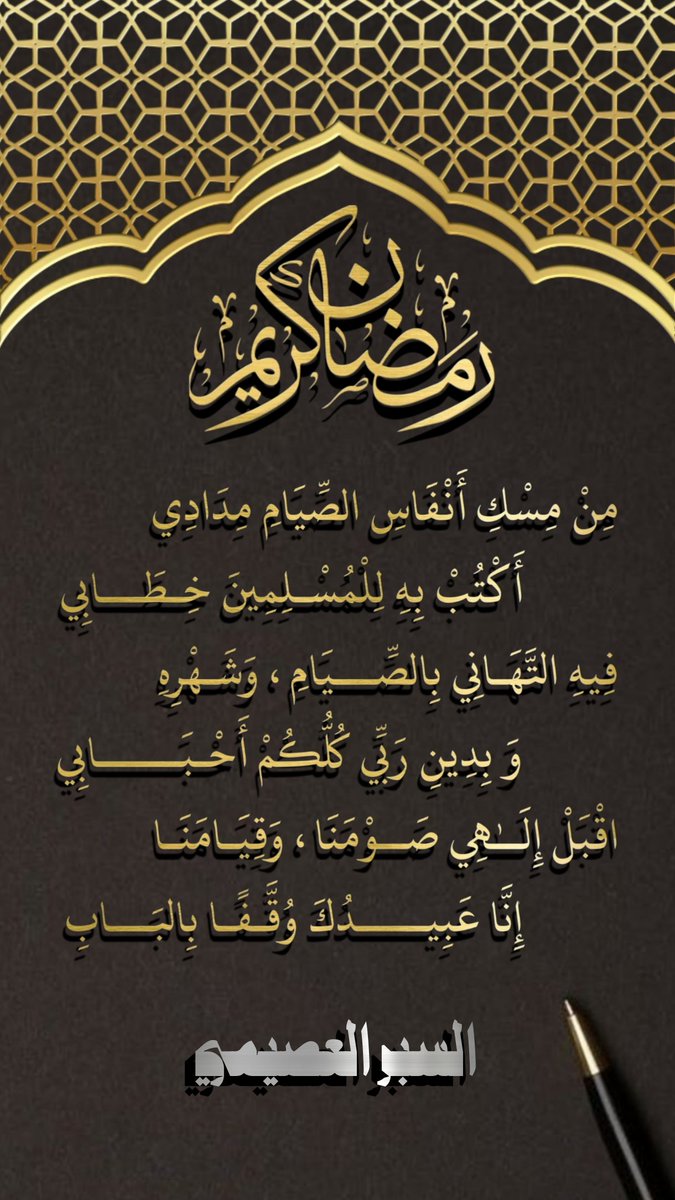 رمضان كريم
مِنْ مِسْكِ أَنْفَاسِ الصِّيَامِ مِدَادِي
أَكْتُبْ بِهِ لِلْمُسْلِمِينَ خِطَابِي
فِيهِ التَّهَانِي بِالصِّيَامِ ، وَشَهْرِهِ
وَ بِدِينِ رَبِّي كُلُّكُمْ أَحْبَابِي
اقْبَلْ إِلَٰهِي صَوْمَنَا ، وَقِيَامَنَا
إِنَّا عَبِيدُكَ وُقَّفًا بِالبَابِ
السبر العصيمي